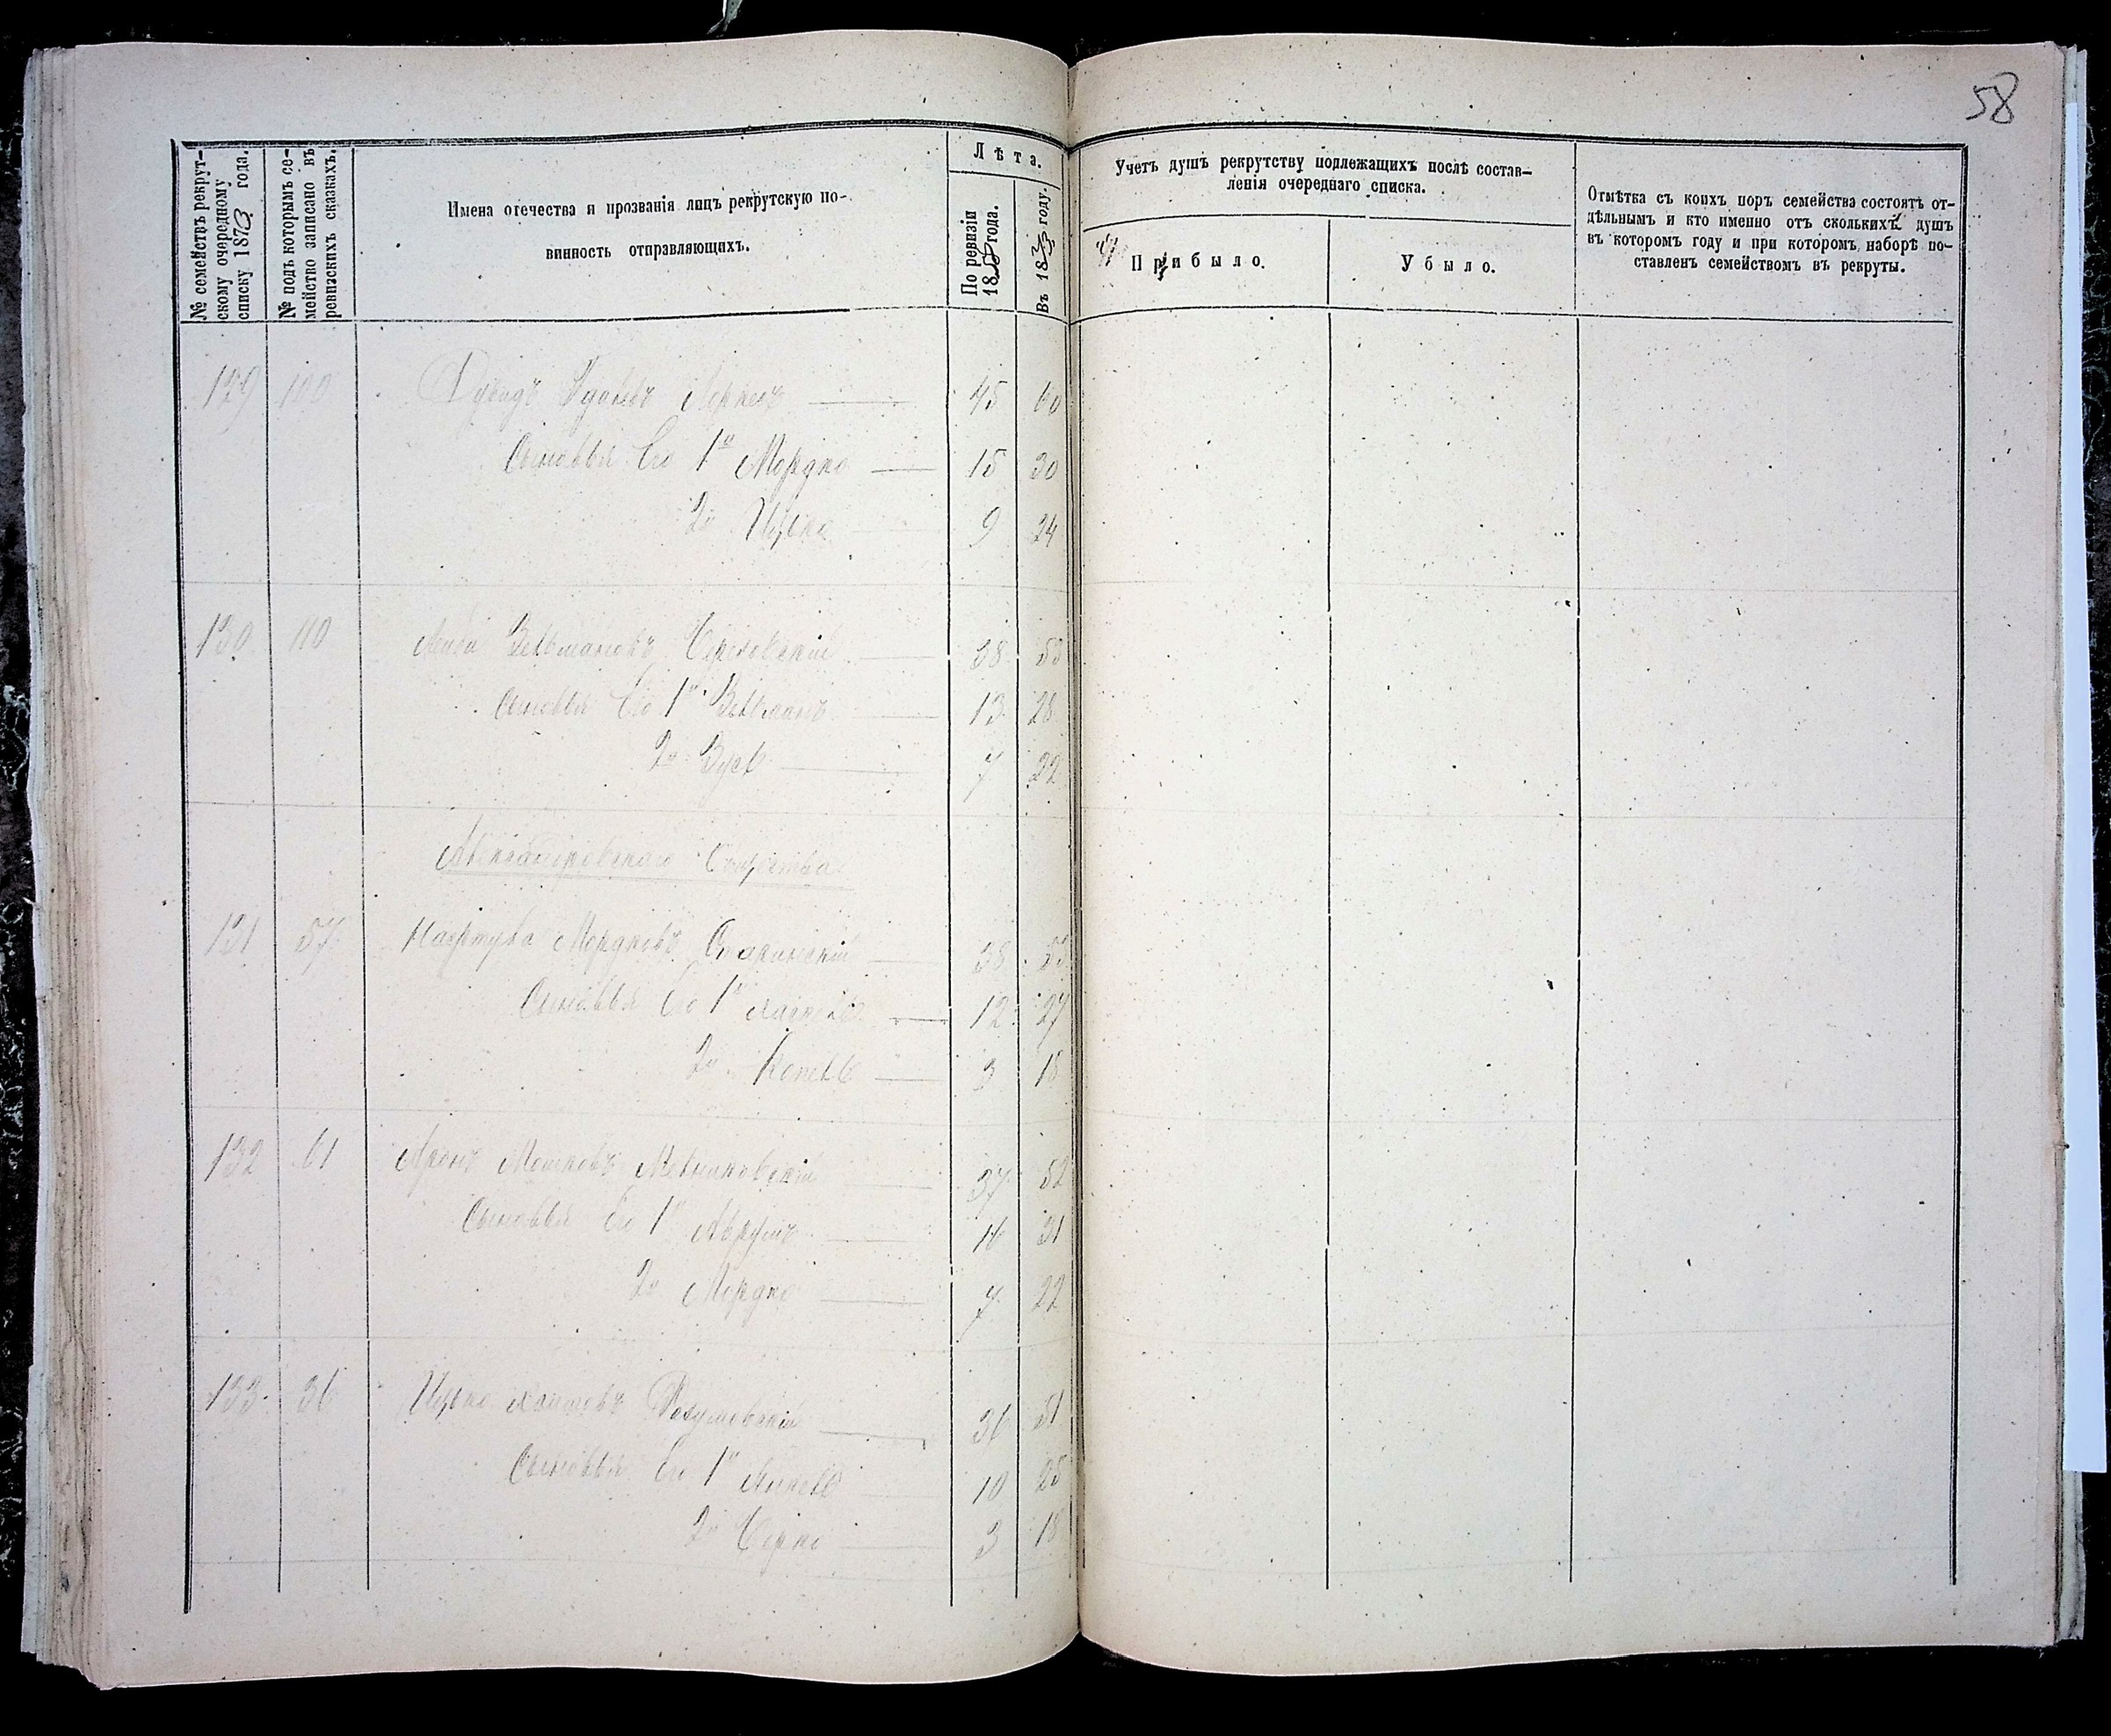 58
№ семействъ рекрут-
скому очередному
списку 1873 года.
№ подъ которымъ се-
мейство записано въ
ревизскихъ сказкахъ.
Имена отечества и прозванія лицъ рекрутскую по-
винность отправляющихъ.
Лѣта.
По ревизіи
1858 года.
Въ 1873 году.
Учетъ душъ рекрутству подлежащихъ послѣ состав-
ленія очереднаго списка.
Прибыло.
Убыло.
Отмѣтка съ коихъ поръ семейства состоятъ от-
дѣльнымъ и кто именно отъ сколькихъ душъ
въ которомъ году и при которомъ наборѣ по-
ставленъ семействомъ въ рекруты.
129 100 45 60
Сыновья Его 1й Мордко 15 30
2й Ицько 9 24
130 110 Зельмановъ 38 53
Сыновья Его 1й Зельманъ 13 28
2й Зусь 7 22
Общества
131 57 Мордковъ 38 53
Сыновья Его 1й 12 27
2й Копель 3 18
132 61 Аронъ Мошковъ 37 52
Сыновья Его 1й Аврумъ 16 31
2й Мордко 7 22
133 36 Ицько Хаимовъ 36 51
Сыновья Его 1й 10 25
2й 3 18